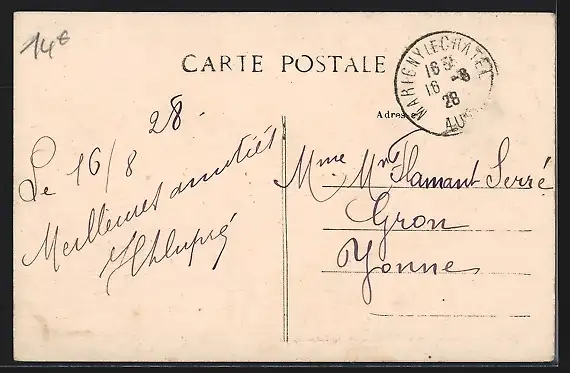 14€
CARTE POSTALE
MARIGNY LE CHATEL
16 8
28
AUBE
Adres
Le 16/8 28.
Meilleures amitiés
Mme Mr Flamant Serré
Gron
Yonne